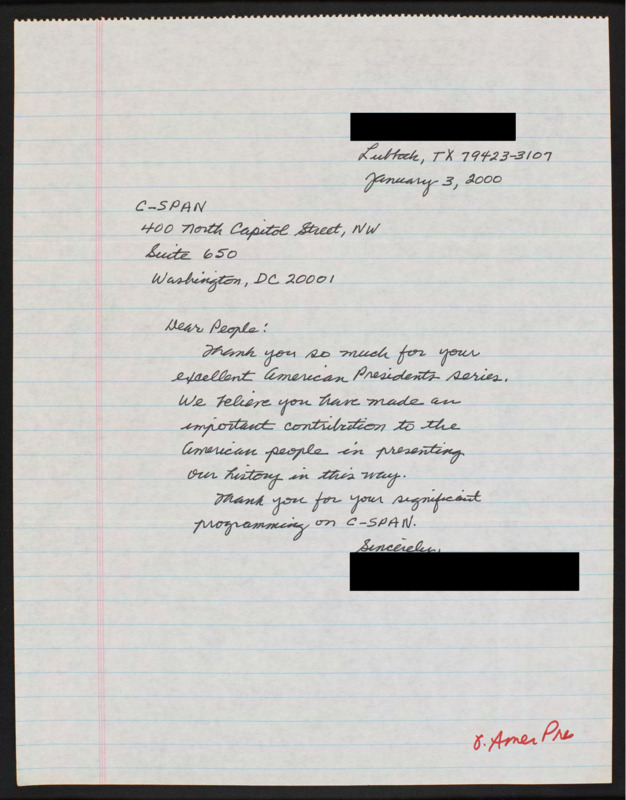 Lubbock, TX 79423-3107
January 3, 2000
C-SPAN
400 North Capitol Street, NW
Suite 650
Washington, DC 20001
Dear People:
Thank you so much for your
excellent American Presidents series.
We believe you have made an
important contribution to the
American people in presenting
our history in this way.
Thank you for your significant
programming on C-SPAN.
Sincerely,
Amer Pre